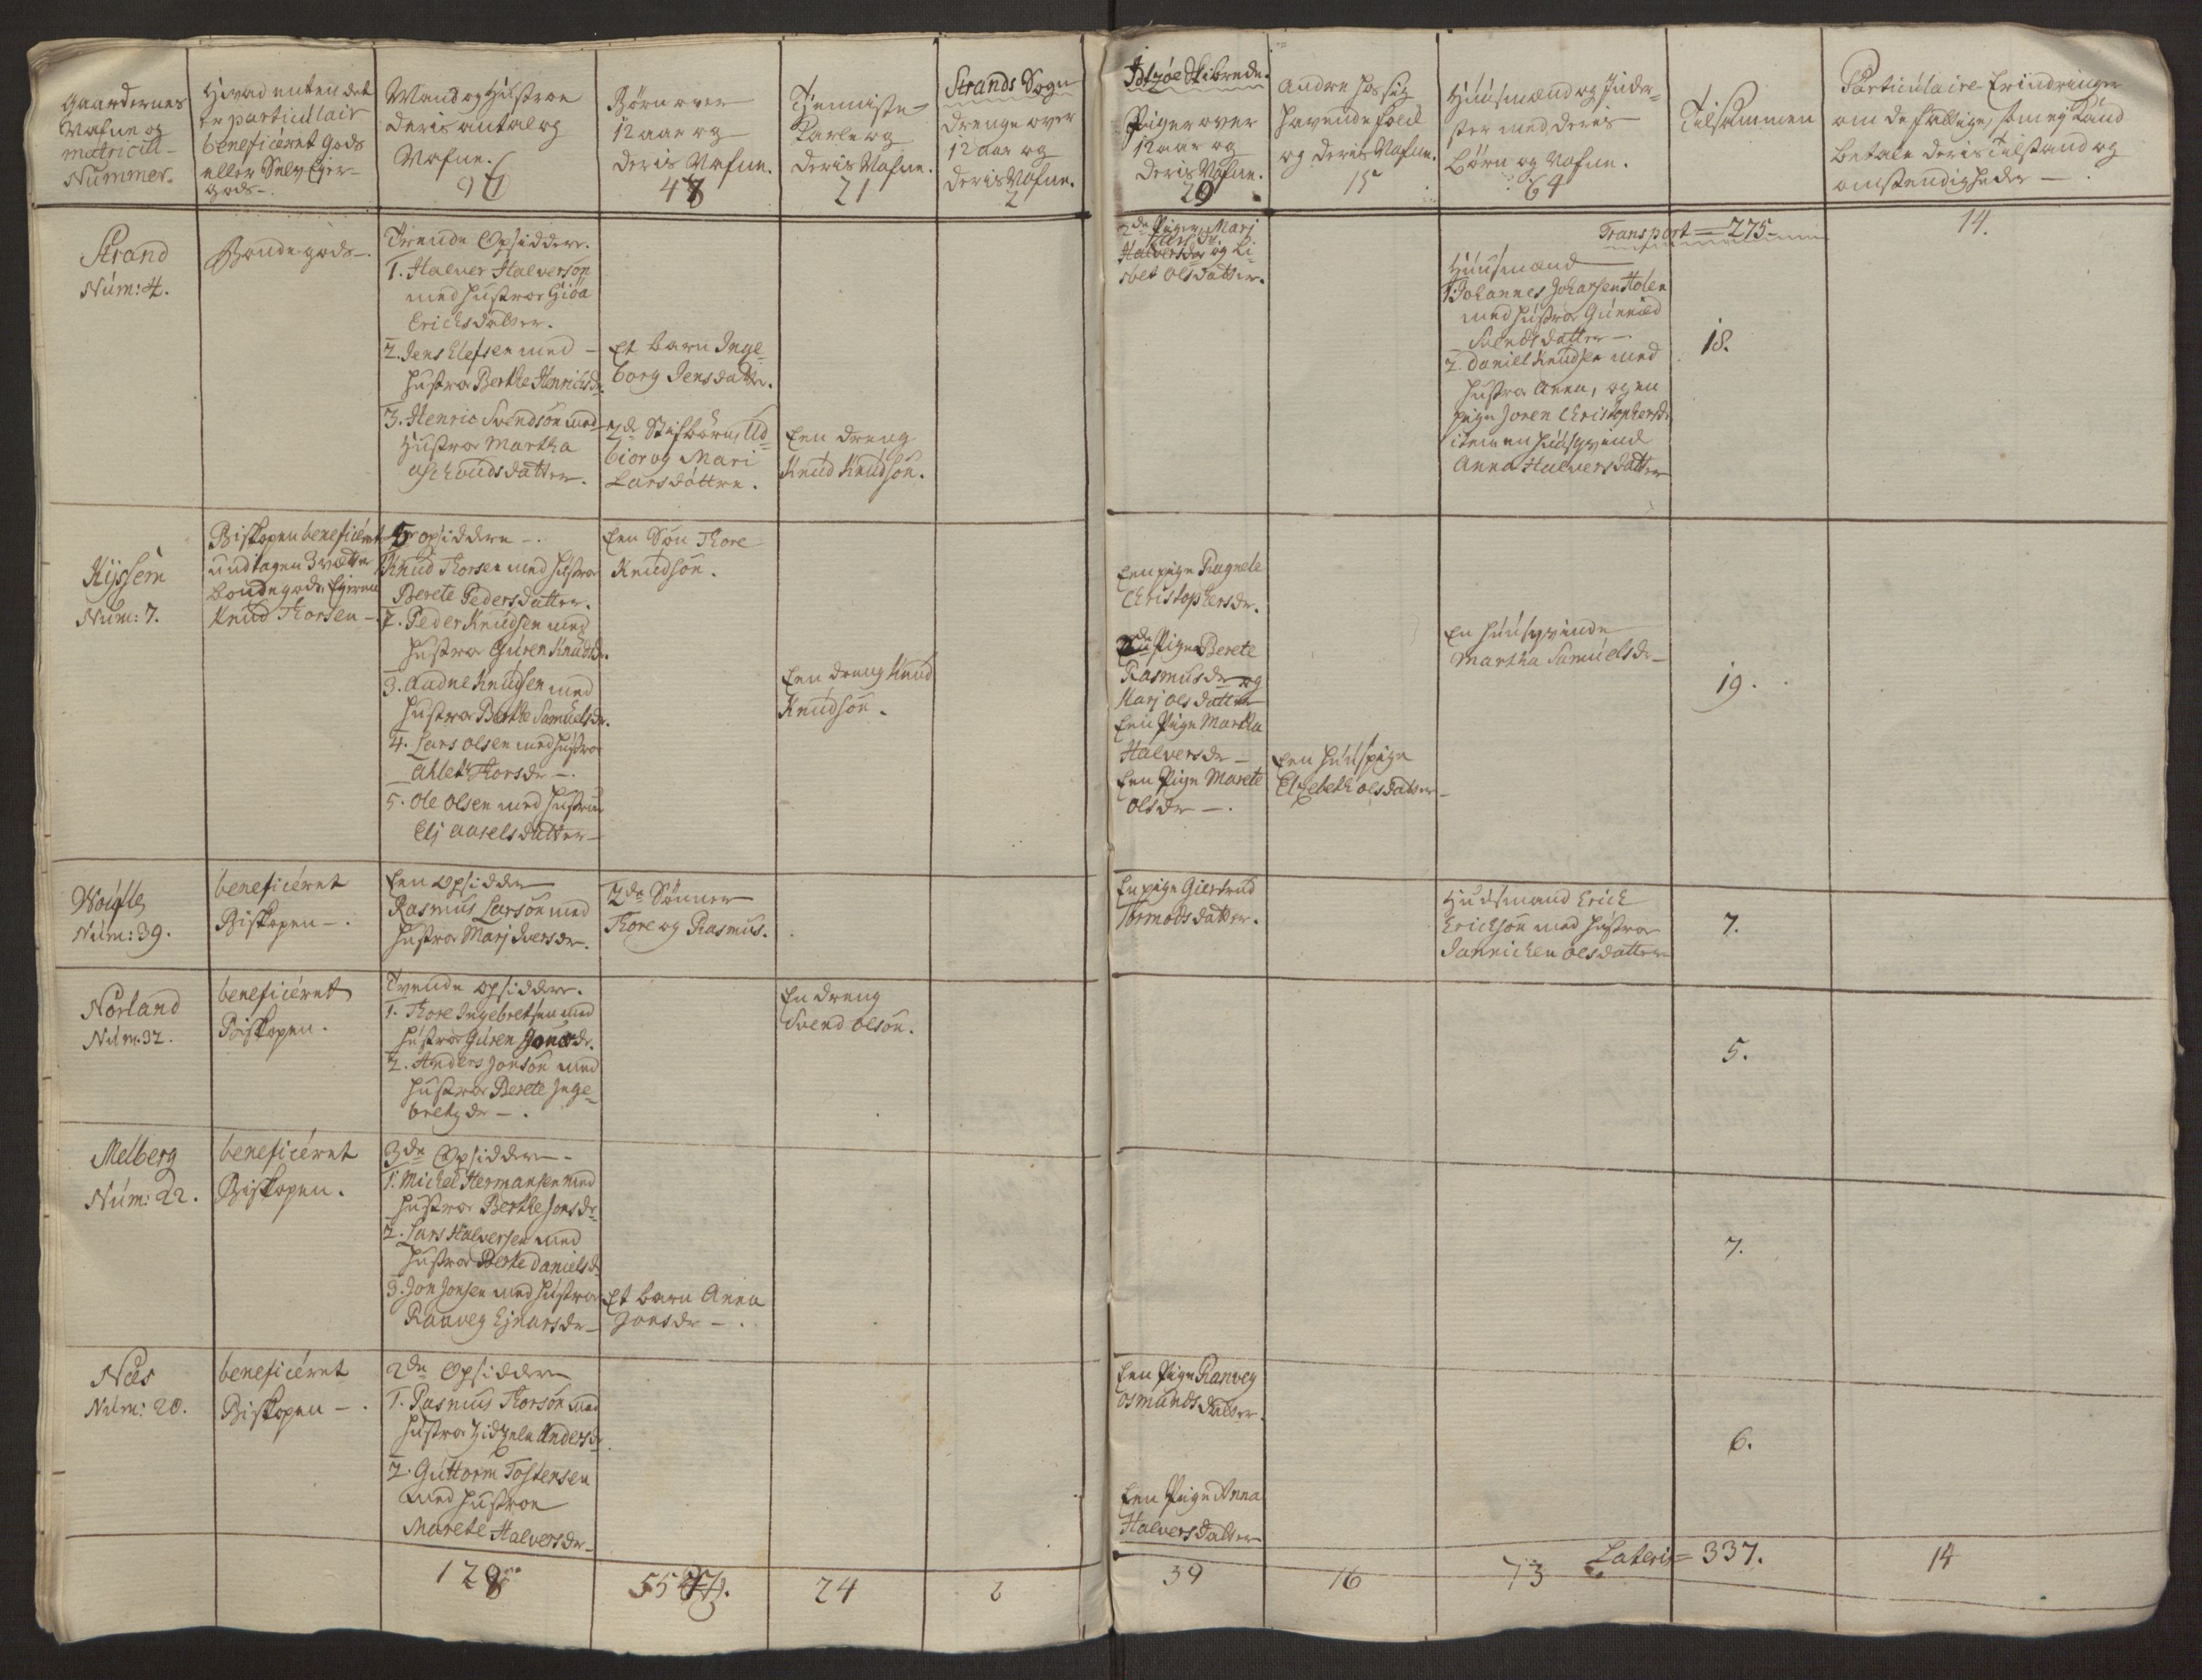 Gaardernes
Nafne og
matricul-
Nummer.
Hvad enten det
er particulair
beneficéret gods
eller Selv Ejer-
gods-.
Mand og Hustroe
deris antal og
Nafne.
Børn over
12 aar og
deris Nafne.
48
Tienniste-
Karle og
deris Nafne.
21
Strands Sogn
drenge over
12 aar og
deris Nafne.
2
Skibrede.
Piger over
12 aar og
deris Nafne.
29
Andre hos sig
havende folck
og deris Nafne.
15
Huusmænd og Inder-
ster med deris
Børn og Nafne.
64
Tilsammen
Particulaire Erindringer
om de fattige, som ej kand
betale deris tilstand og
omstendigheder -
Strand
Núm: 4.
Bondegods-.
Trende Opsiddere.
1. Halver Halverson
med hustroe Giøa
Erichsdatter.
2. Jens Elefsen med -
hustroe Berthe Henrichsdr.
3. Henric Svendsøn med
Hustroe Martha
Aschoudsdatter.
Et barn Inge-
borg Jensdatter.
2de Stifbørn, Ud-
bior og Mari
Larsdøttre.
Een dreng
Knud Knudsøn.
2de Piger, Marj
Halversdr og Li-
sbet Olsdatter.
Transport = 275-
14.
Huusmænd
1. Johannes Johansen Holen
med hustroe Gunnild
Svendsdatter -
2. Daniel Knudsen med
hustroe Anna, og en
pige Joren Christophersdr
item en huuskvind
Anna Halversdatter
18.
Kyssem
Num: 7.
Biskopen beneficéret
undtagen 3 vetter
bondegods Ejeren
Knud Thorsen -
5 opsiddere -.
Knud Thorsen med hustroe
Berete Pedersdatter.
2. Peder Knudsen med
hustroe Guren Knudsdr.
3. Audne Knudsen med
hustroe Berthe Samuelsdr.
4. Lars Olsen med hustroe
Ahlet Thorsdr -.
5. Ole Olsen med hustroe
Elj Axelsdatter -
Een Søn Thore
Knudsøn.
Een dreng Knud
Knudsøn.
Een pige Ragnele
Christophersdr.
2de Piger Berete
Rasmusdr og
Marj Olsdatter
Een Pige Martha
Halversdr -
Een Pige Marete
Olsdr -.
Een huuspige
Elsebeth Olsdatter -
En huuskvinde
Martha Samuelsdr -
19.
Núm: 39.
beneficéret
Biskopen -.
Een opsidder
Rasmus Larsøn med
hustroe Marj Iversdr.
2de Sønner
Thore og Rasmus.
En pige Giertrud
Tormodsdatter.
Huusmand Erich
Erichsøn med hustroe
Jannichen Olsdatter
7.
Nórland
Núm: 32.
beneficéret
Biskopen.
Tvende opsiddere.
1. Thore Ingebretsen med
hustroe Guren Jonsdr.
2. Anders Jonsøn med
hustroe Berete Inge-
bretzdr -.
En dreng
Svend Olsøn.
5.
Melberg
Núm: 22.
beneficéret
Biskopen.
3de Opsiddere -
1. Michel Hermansen med
hustroe Berthe Jonsdr
2. Lars Halversen med
hustroe Berte Danielsdr
3. Jon Jonsen med hustroe
Ranveg Ejnarsdr -
Et barn Anna
Jonsdr -.
7.
Næs
Núm: 20.
beneficéret
Biskopen -.
2de Opsiddere
1. Rasmus Thorsøn med
hustroe Zidzele Andersdr.
2. Guttorm Tostensen
med hustroe
Marete Halversdr -
Een Pige Ranveg
Osmundsdatter.
Een Pige Anna
Halversdatter
6.
128
55
24
2
39
16
73
Lateris = 337.
14